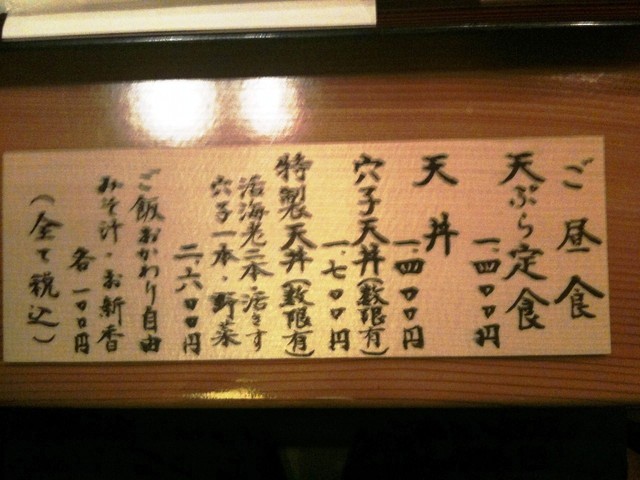 ご昼食
天ぷら定食
一、四〇〇円
天丼
一、四〇〇円
穴子天丼(数限有)
一、七〇〇円
特製天丼(数限有)
活海老二本・活きす
穴子一本・野菜
二、六〇〇円
ご飯おかわり自由
みそ汁・お新香
各一〇〇円
(全て税込)